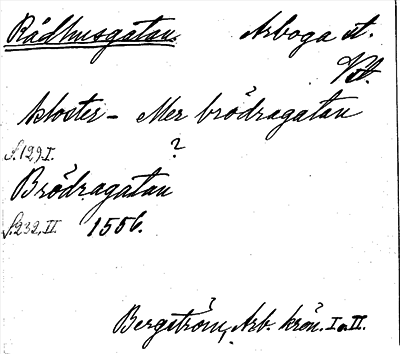 Rådhusgatan. Arboga st.
Vstm.
kloster - Mer brödragatan
S. 129, I. ?
Brödragatan
S. 232, II. 1556.
Bergström, Arb. krön. I o. II.